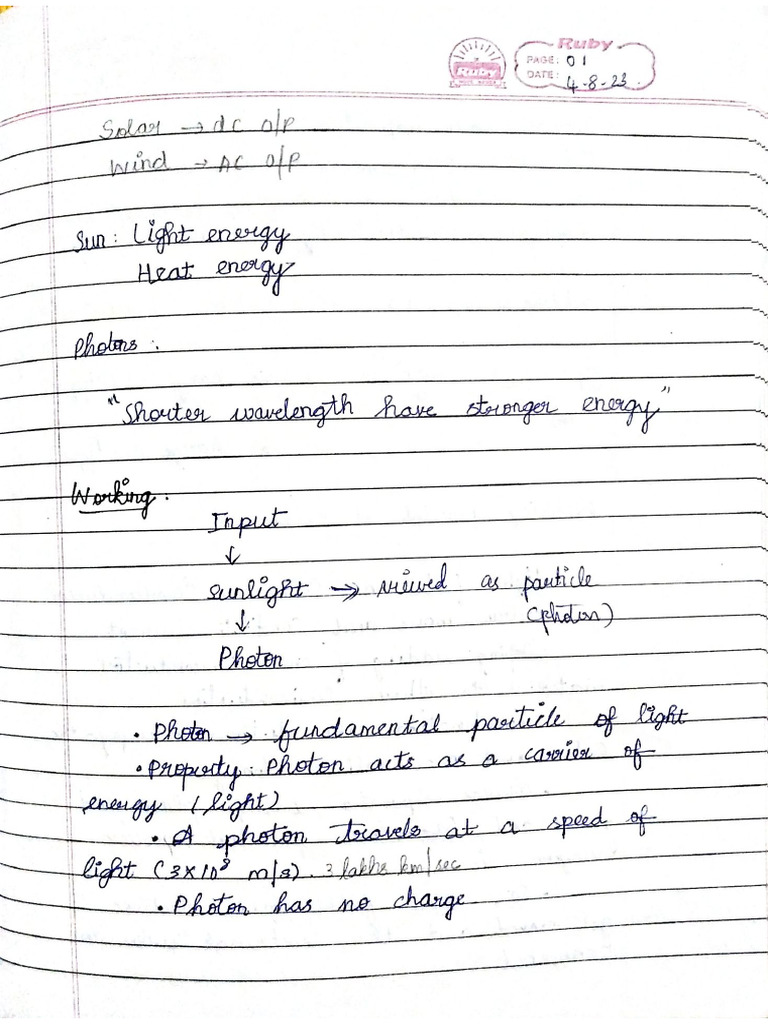 Ruby
Ruby
PAGE: 01
DATE: 4-8-23
Solar → dC O/P
Wind → AC O/P
Sun: Light energy
Heat energy
Photons:
"Shorter wavelength have stronger energy"
Working:
Input
↓
sunlight → viewed as particle
↓ (photon)
Photon
• Photon → fundamental particle of light
• Property: Photon acts as a carrier of
energy (light)
• A photon travels at a speed of
light (3×10⁸ m/s). 3 lakhs km/sec
• Photon has no charge